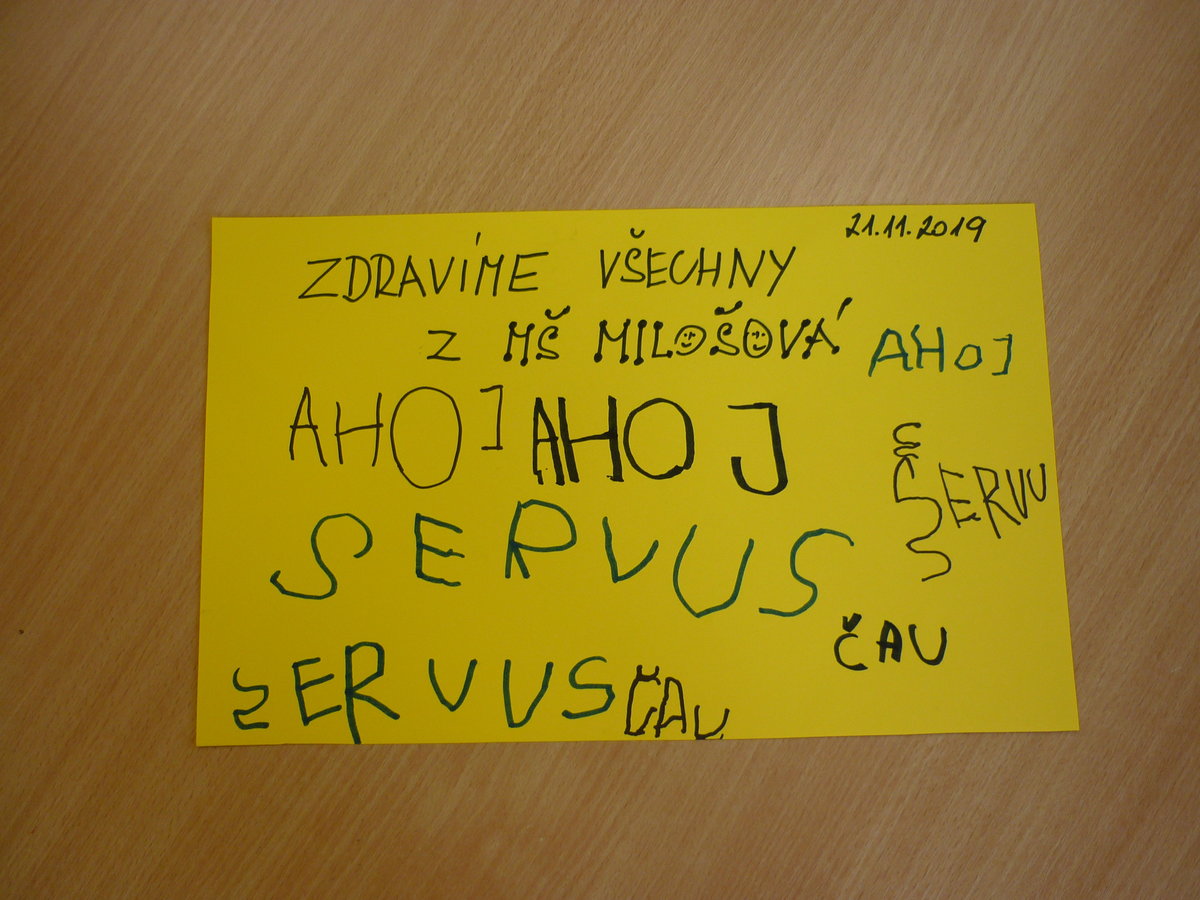 21.11.2019
ZDRAVÍME VŠECHNY
Z MŠ MILOŠOVÁ
AHOJ
AHOJ AHOJ
SERVUS
SERVUS
ČAU
SERVUS ČAU